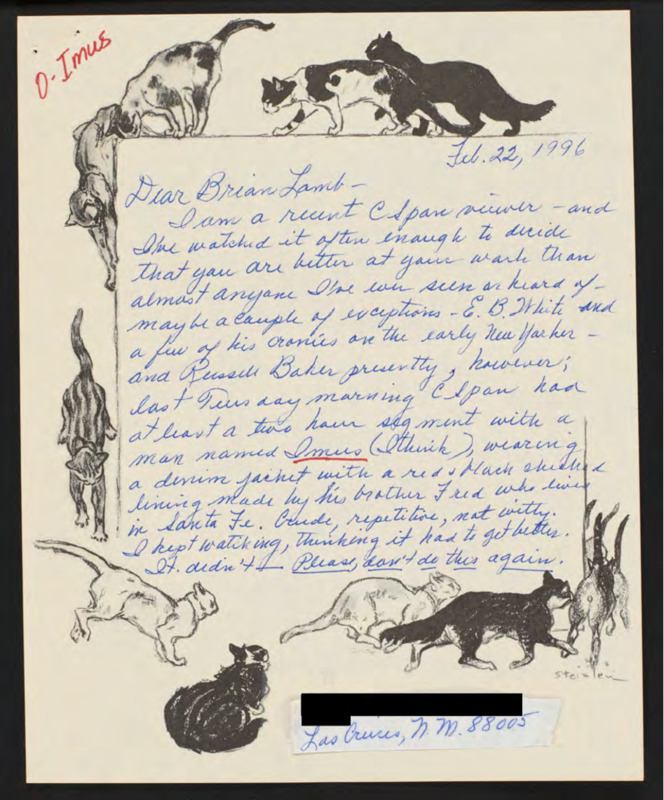 O-Imus
Feb. 22, 1996
Dear Brian Lamb-
I am a recent C Span viewer - and
I've watched it often enough to decide
that you are better at your work than
almost anyone I've ever seen or heard of-
maybe a couple of exceptions - E. B. White and
a few of his cronies on the early New Yorker -
and Russell Baker presently, however;
last Tuesday morning C Span had
at least a two hour segment with a
man named Imus (I think), wearing
a denim jacket with a red & black checked
lining made by his brother Fred who lives
in Santa Fe. Crude, repetitive, not witty.
I kept watching, thinking it had to get better.
It didn't - Please, don't do this again.
Steinlen
Las Cruces, N.M. 88005